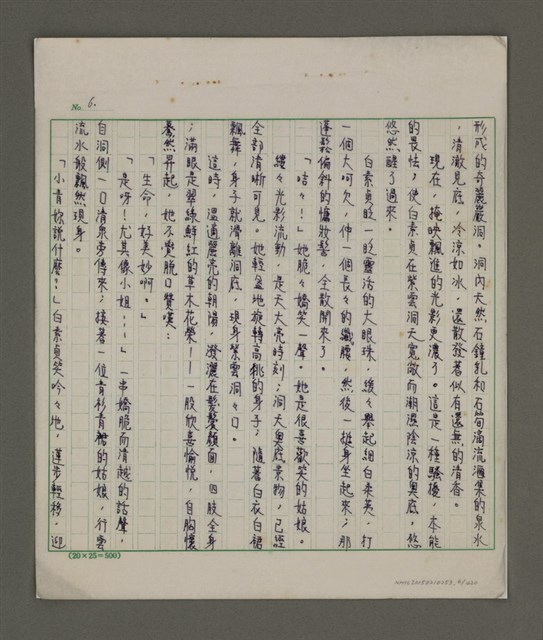 No. 6.
形成的奇麗巖洞。洞內天然石鐘乳和石筍滴流滙集的泉水
，清澈見底，冷涼如冰，還散發著似有還無的清香。
現在，掩映飄進的光影更濃了。這是一種騷擾，本能
的畏怯，使白素貞在紫雲洞天寬敞而潮濕陰涼的奧底，悠
悠然醒了過來。
白素貞眨一眨靈活的大眼珠，緩々舉起細白柔荑，打
一個大呵欠，伸一個長々的纖腰，然後一挺身坐起來；那
蓬鬆偏斜的慵妝髻，全散開來了。
「咭々！」她脆々嬌笑一聲。她是很喜歡笑的姑娘。
縷々光影流動，是天大亮時刻；洞天奧底景物，已經
全部清晰可見。她輕盈地旋轉高挑的身子，隨著白衣白裙
飄舞，身子就滑離洞底，現身紫雲洞々口。
這時，溫適麗亮的朝陽，潑灑在髮鬢顏面，四肢全身
；滿眼是翠綠鮮紅的草木花榮——一股欣喜愉悅，自胸懷
驀然昇起，她不覺脫口贊嘆：
「生命，好美妙啊。」
「是呀！尤其像小姐⋯⋯」一串嬌脆而清越的話聲，
自洞側一口清泉旁傳來；接著一位青衫青裙的姑娘，行雲
流水般飄然現身。
「小青妳說什麼！」白素貞笑吟々地，蓮步輕移，迎
(20×25=500)